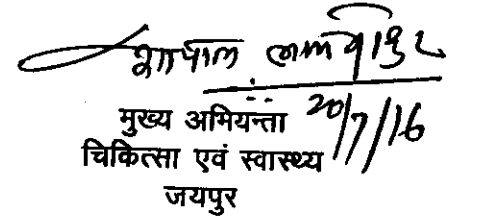 20/7/16
मुख्य अभियन्ता
चिकित्सा एवं स्वास्थ्य
जयपुर